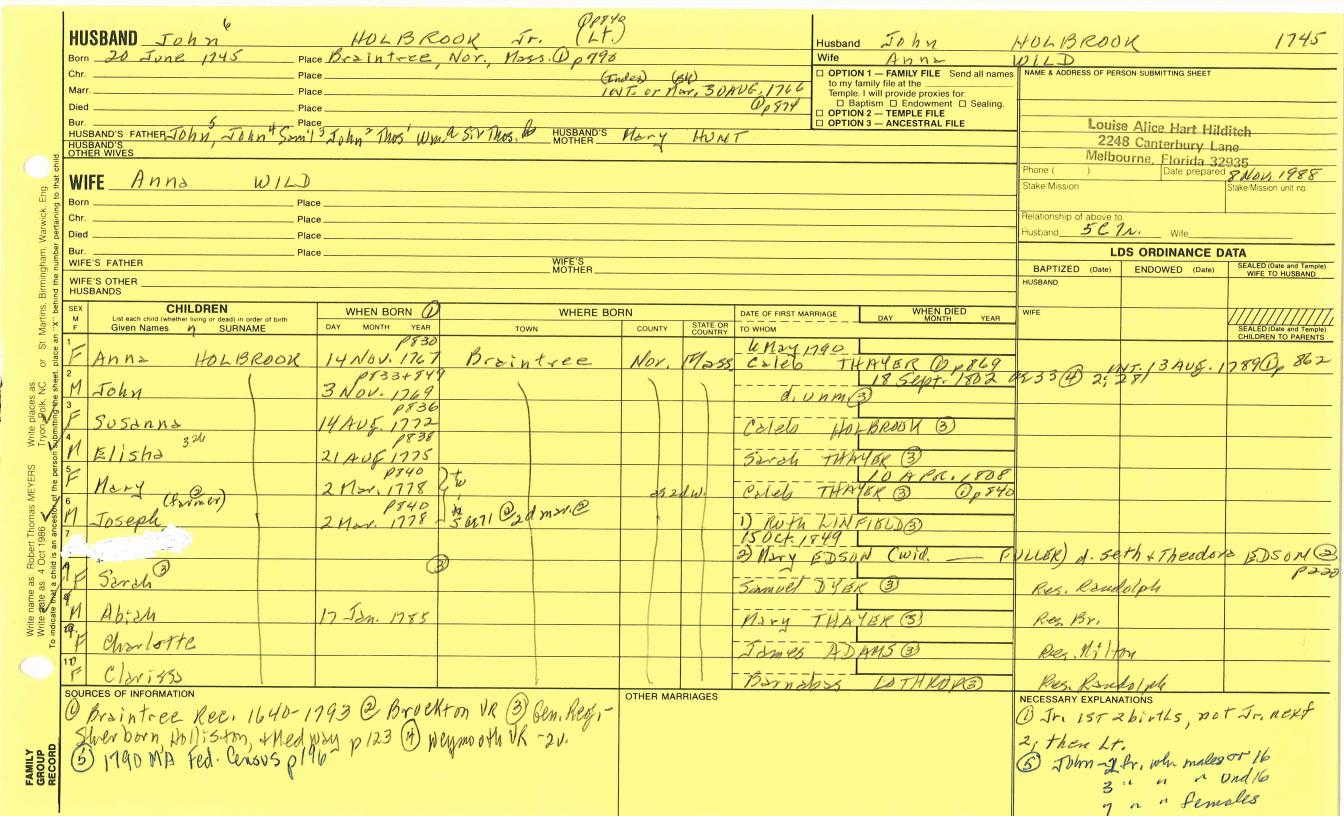 HUSBAND John 6 HOLBROOK Jr. (Lt.) ① p840
Born 20 June 1745 Place Braintree, Nor., Mass. ① p790
Chr. Place
Marr. Place (Index) INT. or Mar. 30 AUG. 1766
① p874
Died Place
Bur. Place
HUSBAND'S FATHER John 5, John 4 Sam'l 3 John 2 Thos 1 Wm. Sir Thos. HUSBAND'S MOTHER Mary HUNT
HUSBAND'S OTHER WIVES
WIFE Anna WILD
Born Place
Chr. Place
Died Place
Bur. Place
WIFE'S FATHER WIFE'S MOTHER
WIFE'S OTHER HUSBANDS
Husband John HOLBROOK 1745
Wife Anna WILD
☐ OPTION 1 — FAMILY FILE Send all names
to my family file at the
Temple. I will provide proxies for:
☐ Baptism ☐ Endowment ☐ Sealing.
☐ OPTION 2 — TEMPLE FILE
☐ OPTION 3 — ANCESTRAL FILE
NAME & ADDRESS OF PERSON SUBMITTING SHEET
Louise Alice Hart Hilditch
2248 Canterbury Lane
Melbourne, Florida 32935
Phone ( ) Date prepared 8 Nov. 1988
Stake Mission Stake/Mission unit no.
Relationship of above to:
Husband 5C 7r. Wife
LDS ORDINANCE DATA
BAPTIZED (Date) ENDOWED (Date) SEALED (Date and Temple) WIFE TO HUSBAND
HUSBAND
WIFE
SEALED (Date and Temple) CHILDREN TO PARENTS
SEX M F CHILDREN WHEN BORN ① WHERE BORN DATE OF FIRST MARRIAGE WHEN DIED
List each child (whether living or dead) in order of birth
Given Names SURNAME DAY MONTH YEAR TOWN COUNTY STATE OR COUNTRY TO WHOM DAY MONTH YEAR
1 p830 6 May 1790
F Anna HOLBROOK 14 NOV. 1767 Braintree Nor. Mass. Caleb THAYER ① p869 INT. 13 AUG. 1789 ① p 862
2 p833+849 18 Sept. 1802 ae 33 ④ 2; 281
M John 3 NOV. 1769 d. unm ③
3 p836
F Susanna 14 AUG. 1772 Caleb HOLBROOK ③
4 p838
M Elisha 21 AUG 1775 Sarah THAYER ③
5 p840 10 APR. 1808
F Mary 2 Mar. 1778 tw as 2d w. Caleb THAYER ③ ① p840
6 (farmer) ② p840
M Joseph 2 Mar. 1778 ② 2d mar. ② 1) Ruth LINFIELD ③
7 15 Oct. 1849
2) Mary EDSON (wid. — FULLER) d. Seth + Theodora EDSON ② p220
③
F Sarah ③ Samuel DYER ③ Res. Randolph
M Abiah 17 Jan. 1785 Mary THAYER ③ Res. Br.
F Charlotte James ADAMS ③ Res. Milton
F Clarissa Barnabas LOTHROP ③ Res. Randolph
SOURCES OF INFORMATION
① Braintree Rec. 1640-1793 ② Brockton VR ③ Gen. Reg.-
Sherborn, Holliston, + Medway p 123 ④ Weymouth VR -2v.
⑤ 1790 MA Fed. Census p196
OTHER MARRIAGES
NECESSARY EXPLANATIONS
① Jr. 1ST 2 births, not Jr. next
2, then Lt.
⑤ John - 2 fr. wh. males or 16
3 " " " und 16
7 " " females
FAMILY GROUP RECORD
Write name as Robert Thomas MEYERS Write places as Tryon, Polk, NC or St Martins, Birmingham, Warwick, Eng.
Write date as 4 Oct 1986
To indicate that a child is an ancestor of the person submitting the sheet, place an "X" behind the number pertaining to that child